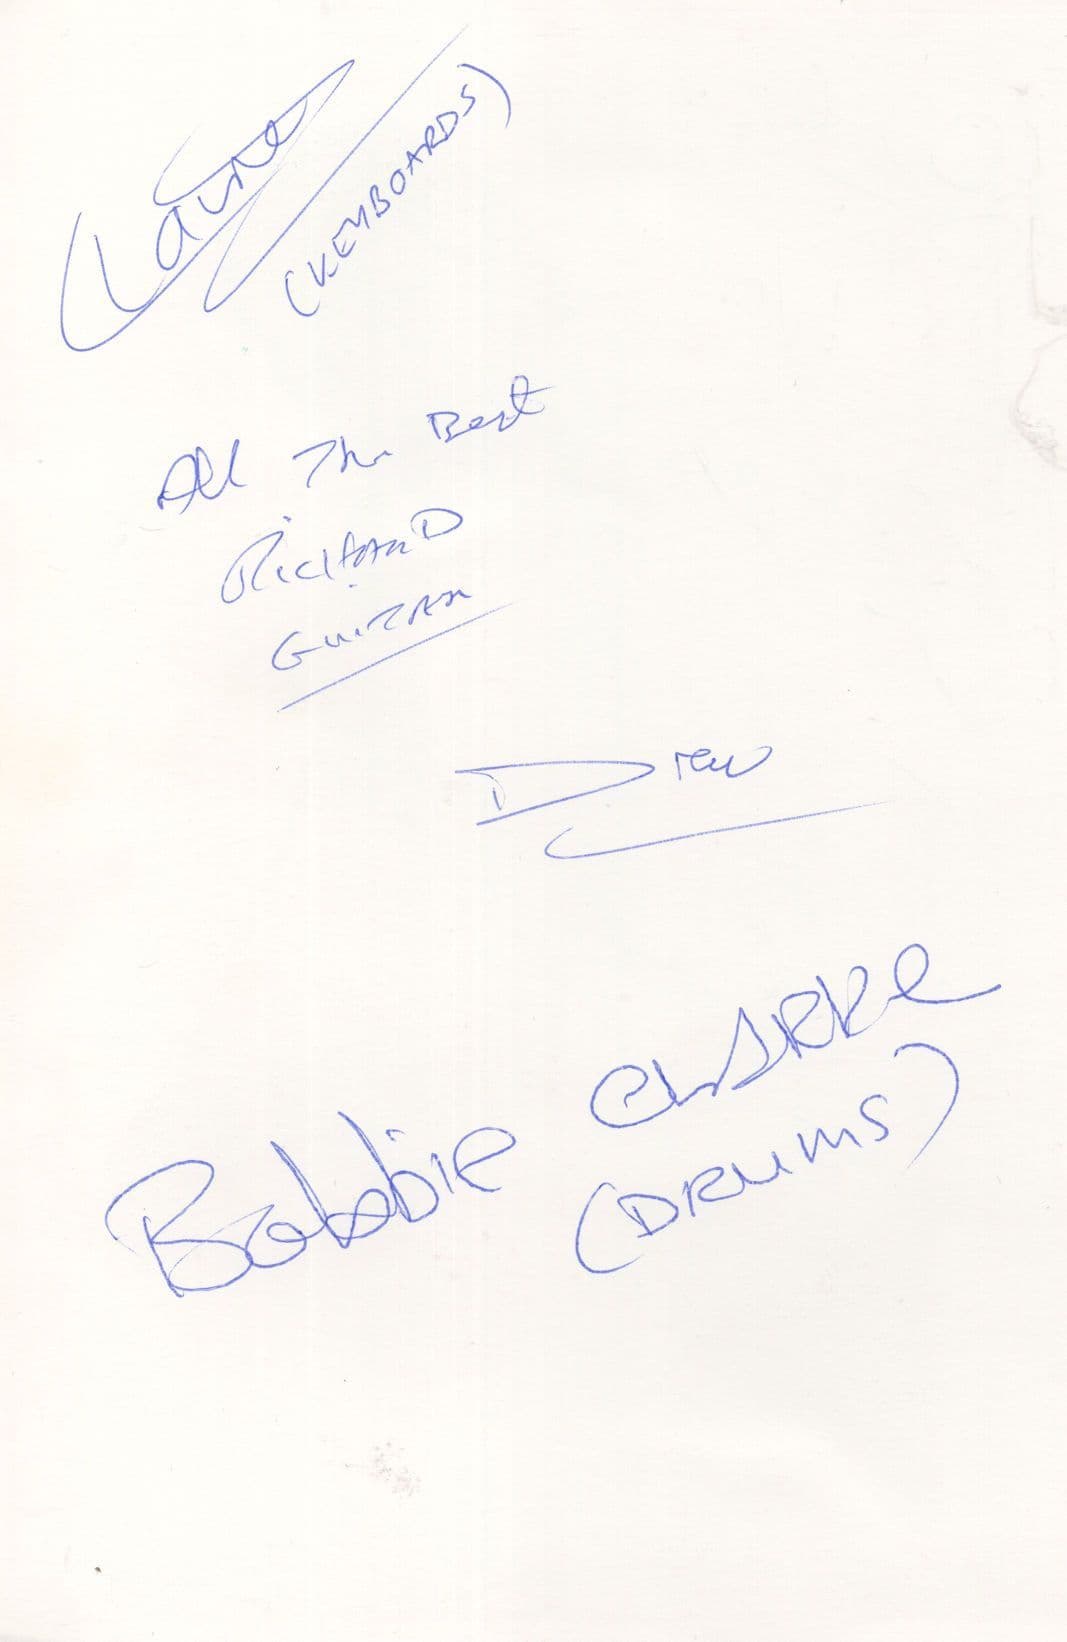 Laurie
(KEYBOARDS)
All The Best
RICHARD
GUITAR
Drew
Bobbie CLARKe
(DRUMS)